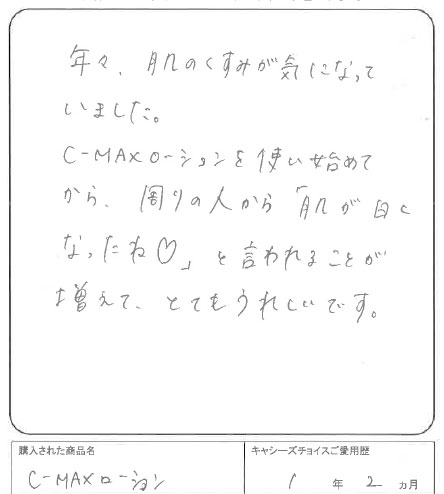 年々、肌のくすみが気になって
いました。
C-MAXローションを使い始めて
から、周りの人から「肌が白く
なったね♡」と言われることが
増えて、とてもうれしいです。
購入された商品名
キャシーズチョイスご愛用歴
C-MAXローション
1年2ヵ月